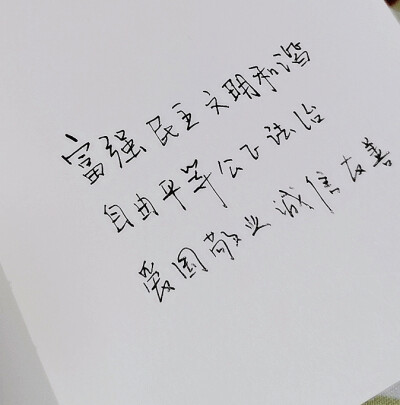 富强民主文明和谐
自由平等公正法治
爱国敬业诚信友善